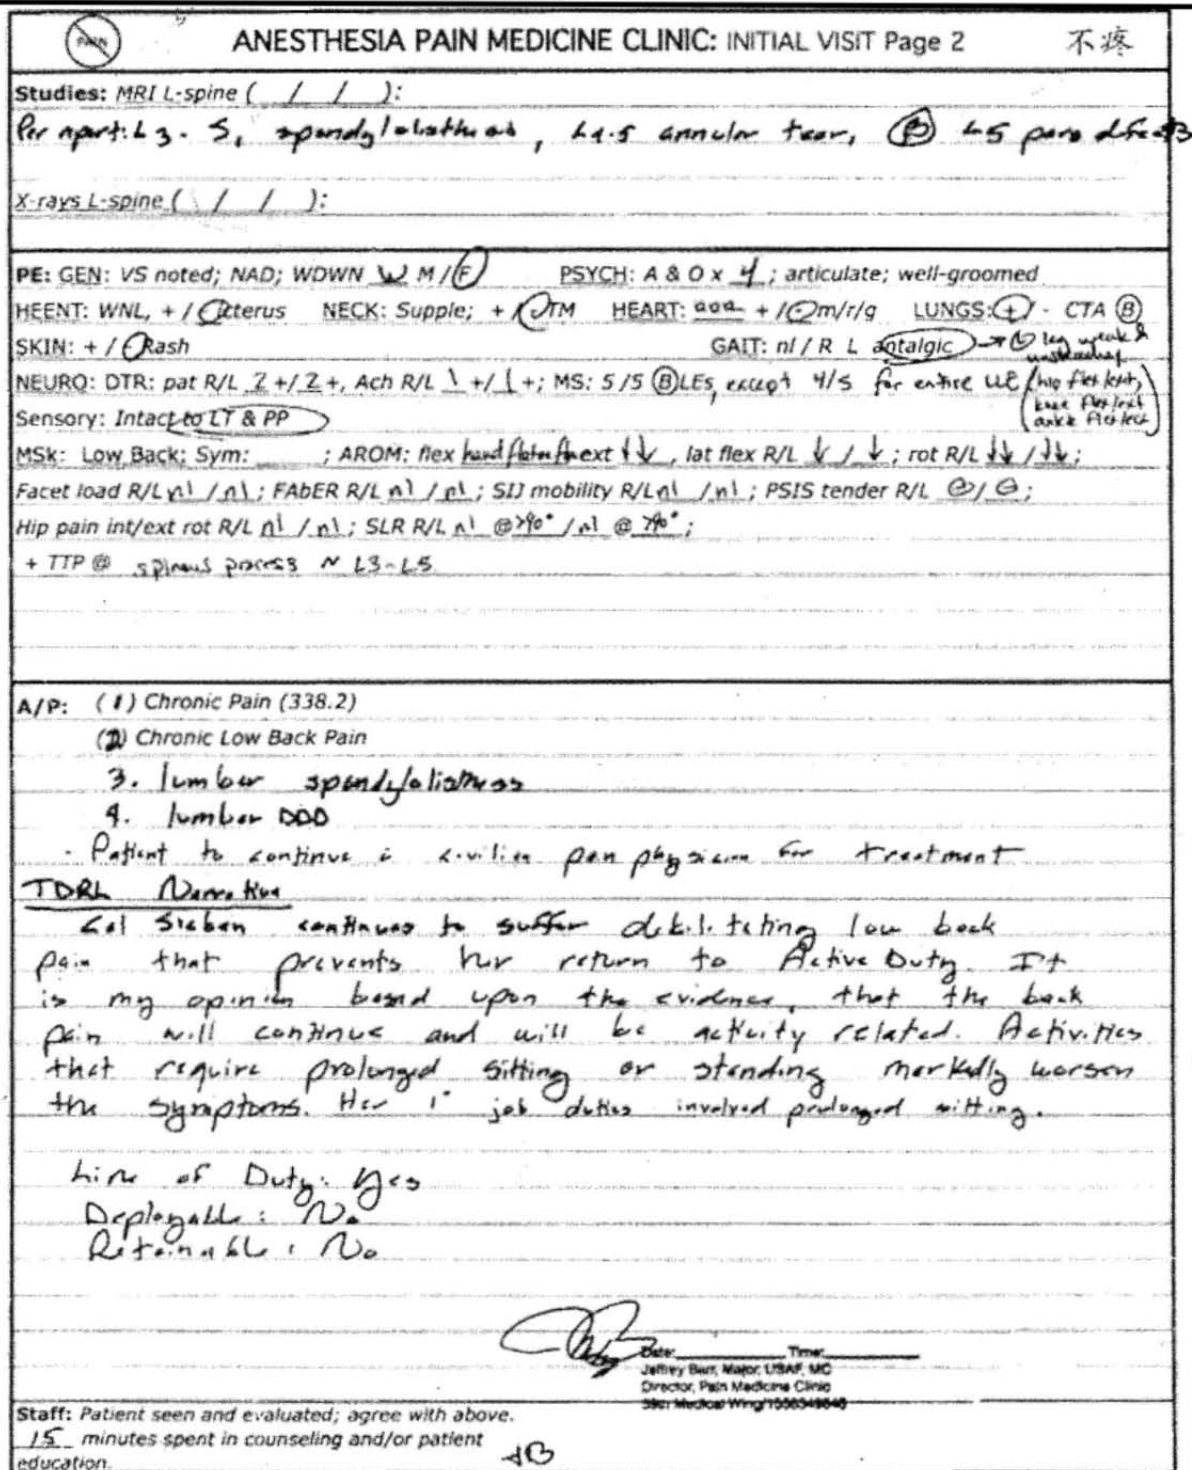 PAIN
ANESTHESIA PAIN MEDICINE CLINIC: INITIAL VISIT Page 2 不疼
Studies: MRI L-spine ( / / ):
Per report: L3-S1 spondylolisthesis, L4-5 annular tear, Ⓑ L5 pars defects
X-rays L-spine ( / / ):
PE: GEN: VS noted; NAD; WDWN W M / F PSYCH: A & O x 4; articulate; well-groomed
HEENT: WNL, + / - icterus NECK: Supple; + / - TM HEART: + / - m/r/g LUNGS: + / - CTA Ⓑ
SKIN: + / - Rash GAIT: nl / R L antalgic → Ⓛ leg weak &
NEURO: DTR: pat R/L 2 +/ 2 +, Ach R/L 1 +/ 1 +; MS: 5 /5 Ⓑ LEs, except 4/5 for entire LLE (hip flex/ext,
knee flex/ext
Sensory: Intact to LT & PP ankle flex/ext)
MSk: Low Back: Sym: ; AROM: flex ext ↓↓, lat flex R/L ↓ / ↓; rot R/L ↓↓ / ↓↓;
Facet load R/L nl / nl; FAbER R/L nl / nl; SIJ mobility R/L nl / nl; PSIS tender R/L ⊖/ ⊖;
Hip pain int/ext rot R/L nl / nl; SLR R/L nl @ >90° / nl @ >90°;
+ TTP @ spinous process ~ L3-L5
A/P: (1) Chronic Pain (338.2)
(2) Chronic Low Back Pain
3. lumbar spondylolisthesis
4. lumbar DDD
- Patient to continue c̄ civilian pain physician for treatment
TDRL Narrative
Col Sieben continues to suffer debilitating low back
pain that prevents her return to Active Duty. It
is my opinion based upon the evidence, that the back
pain will continue and will be activity related. Activities
that require prolonged sitting or standing markedly worsen
the symptoms. Her 1° job duties involved prolonged sitting.
Line of Duty: Yes
Deployable: No
Retainable: No
Date: Time:
Jeffrey Barr, Major, USAF, MC
Director, Pain Medicine Clinic
Medical Wing/
Staff: Patient seen and evaluated; agree with above.
15 minutes spent in counseling and/or patient
education. JB